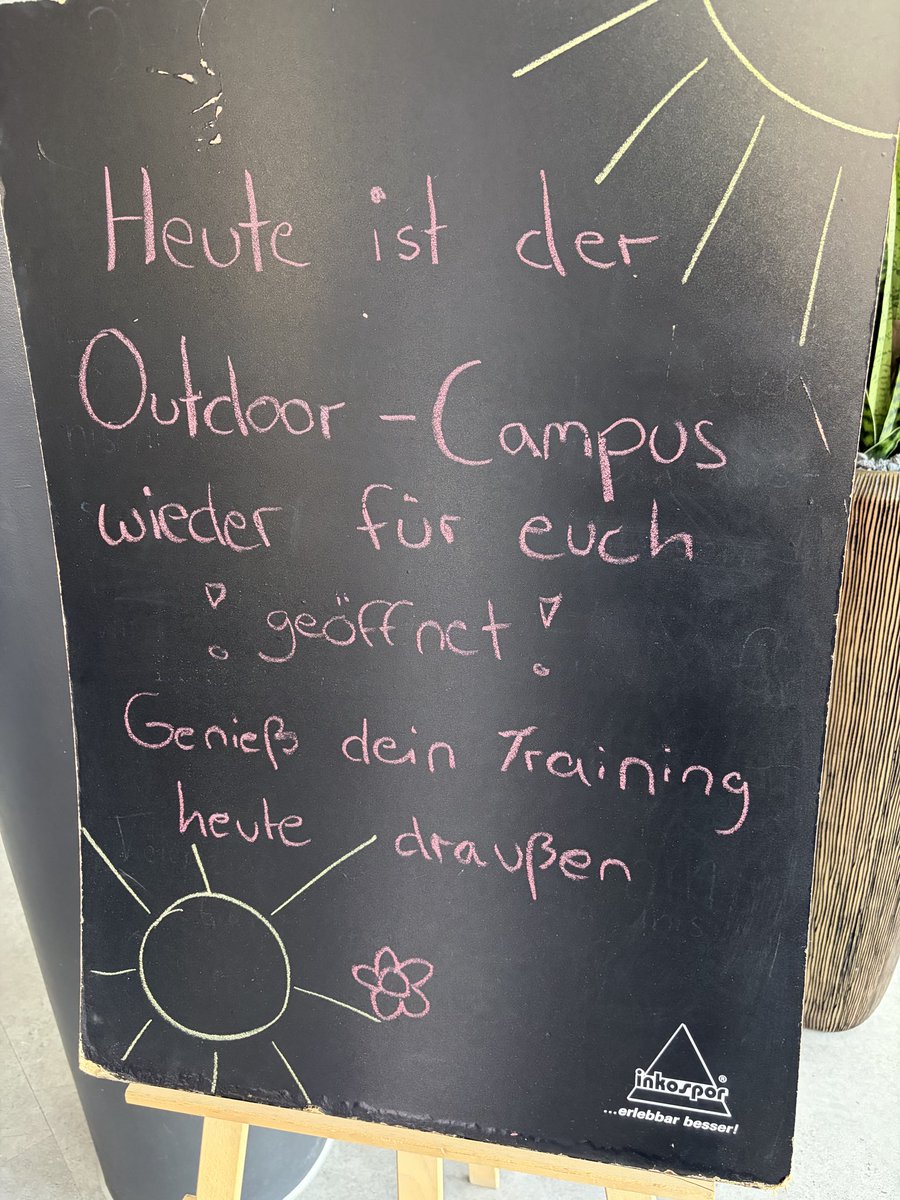 Heute ist der
Outdoor-Campus
wieder für euch
! geöffnet !
Genieß dein Training
heute draußen
inkospor®
...erlebbar besser!